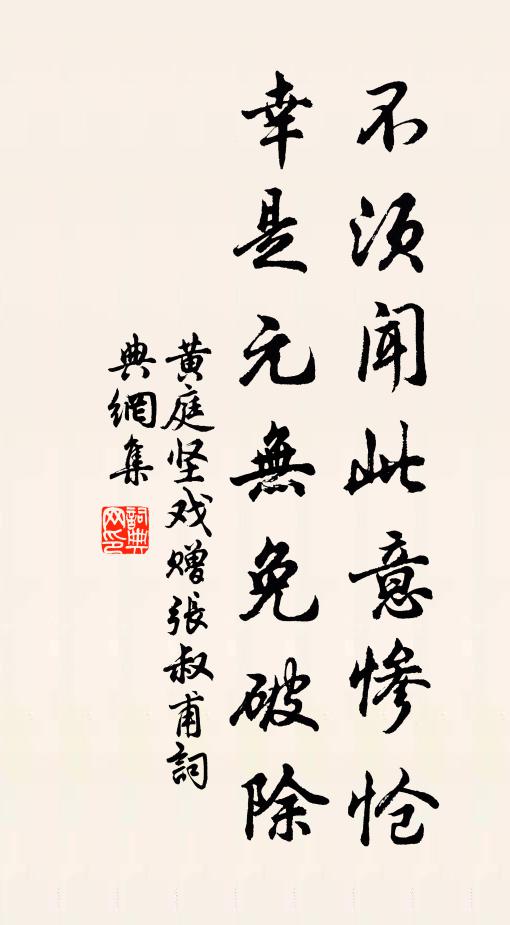 不须闻此意惨怆
幸是元無免破除
黄庭坚戏赠張叔甫詞
典網集
詞典网印